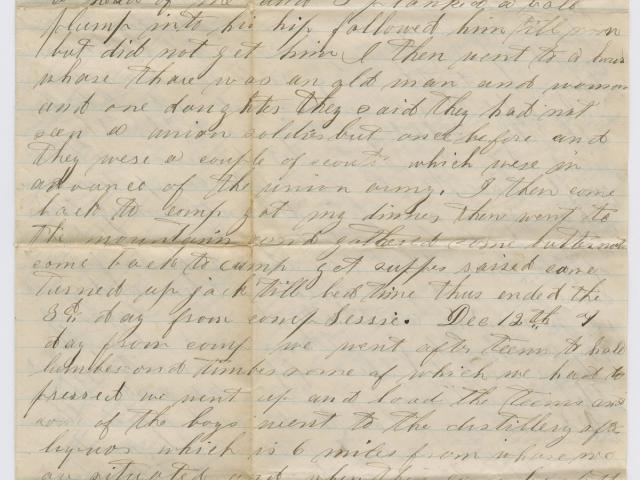 a head of me and I planked a ball
plump into his hip followed him till noon
but did not get him I then went to a hous
whare thare was an old man and woman
and one daughter they said they had not
seen a union soldier but once before and
they were a couple of scouts which were in
advance of the union army. I then come
back to camp got my dinner then went to
the mountain and gathered some butternuts
come back to camp get supper raised cane
turned up jack till bed time thus ended the
8th day from camp Sessie. Dec 12th 9
day from camp we went after teems to hale
lumber and timber some of which we had to
pressed we went up and load the teems and
some of the boys went to the distillery after
liquor which is 6 miles from whare we
ar situated and when they